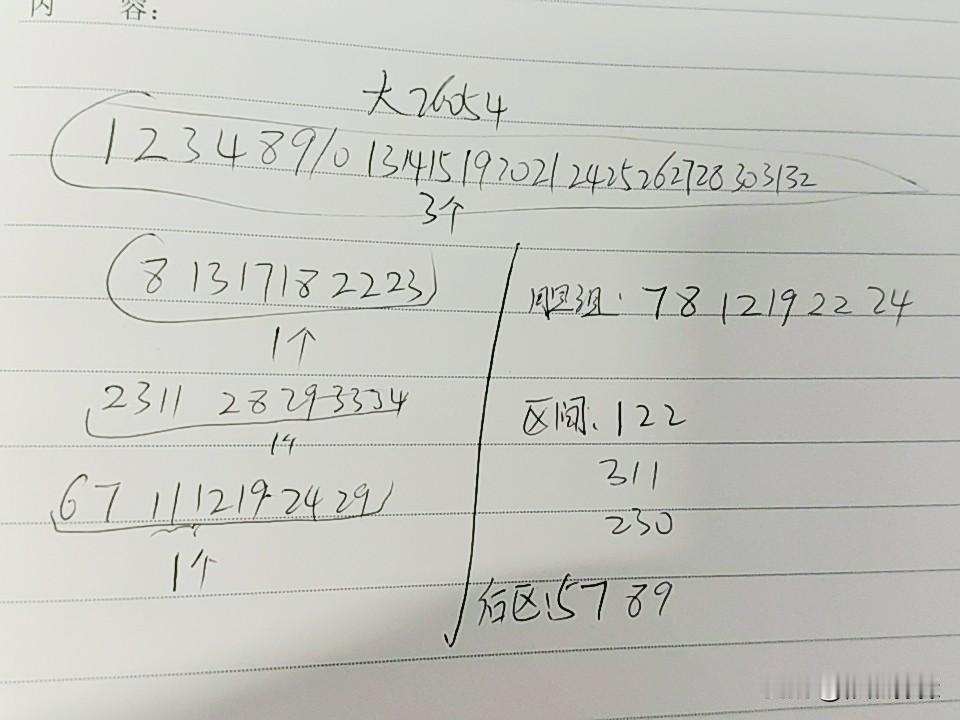 内 容:
大26054
1 2 3 4 8 9 10 13 14 15 19 20 21 24 25 26 27 28 30 31 32
3个
8 13 17 18 22 23
1个
2 3 11 28 29 33 34
1个
6 7 11 12 19 24 29
1个
胆组: 7 8 12 19 22 24
区间: 122
311
230
后区: 5 7 8 9